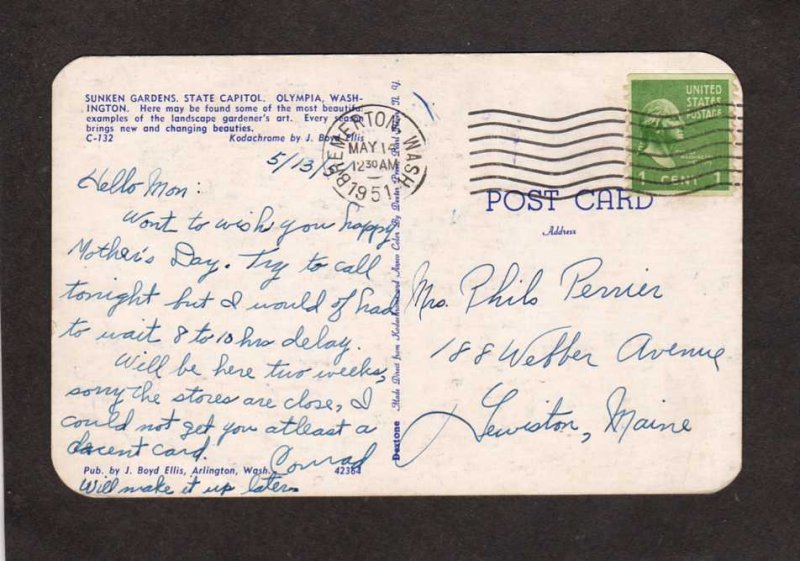 SUNKEN GARDENS. STATE CAPITOL. OLYMPIA, WASH-
INGTON. Here may be found some of the most beautiful
examples of the landscape gardener's art. Every season
brings new and changing beauties.
C-132 Kodachrome by J. Boyd Ellis
5/13/51
Hello Mom:
Want to wish you happy
Mother's Day. Try to call
tonight but I would of had
to wait 8 to 10 hrs delay.
Will be here two weeks,
sorry the stores are close, I
could not get you atleast a
decent card. Conrad
Pub. by J. Boyd Ellis, Arlington, Wash. 42364
Will make it up later.
Dextone Made Direct from Kodachrome and Ansco Color By Dexter Press, Pearl River, N. Y.
BREMERTON, WASH.
MAY 14
12 30 AM
1951
UNITED
STATES
POSTAGE
1 CENT 1
POST CARD
Address
Mrs. Phils Perrier
188 Webber Avenue
Lewiston, Maine